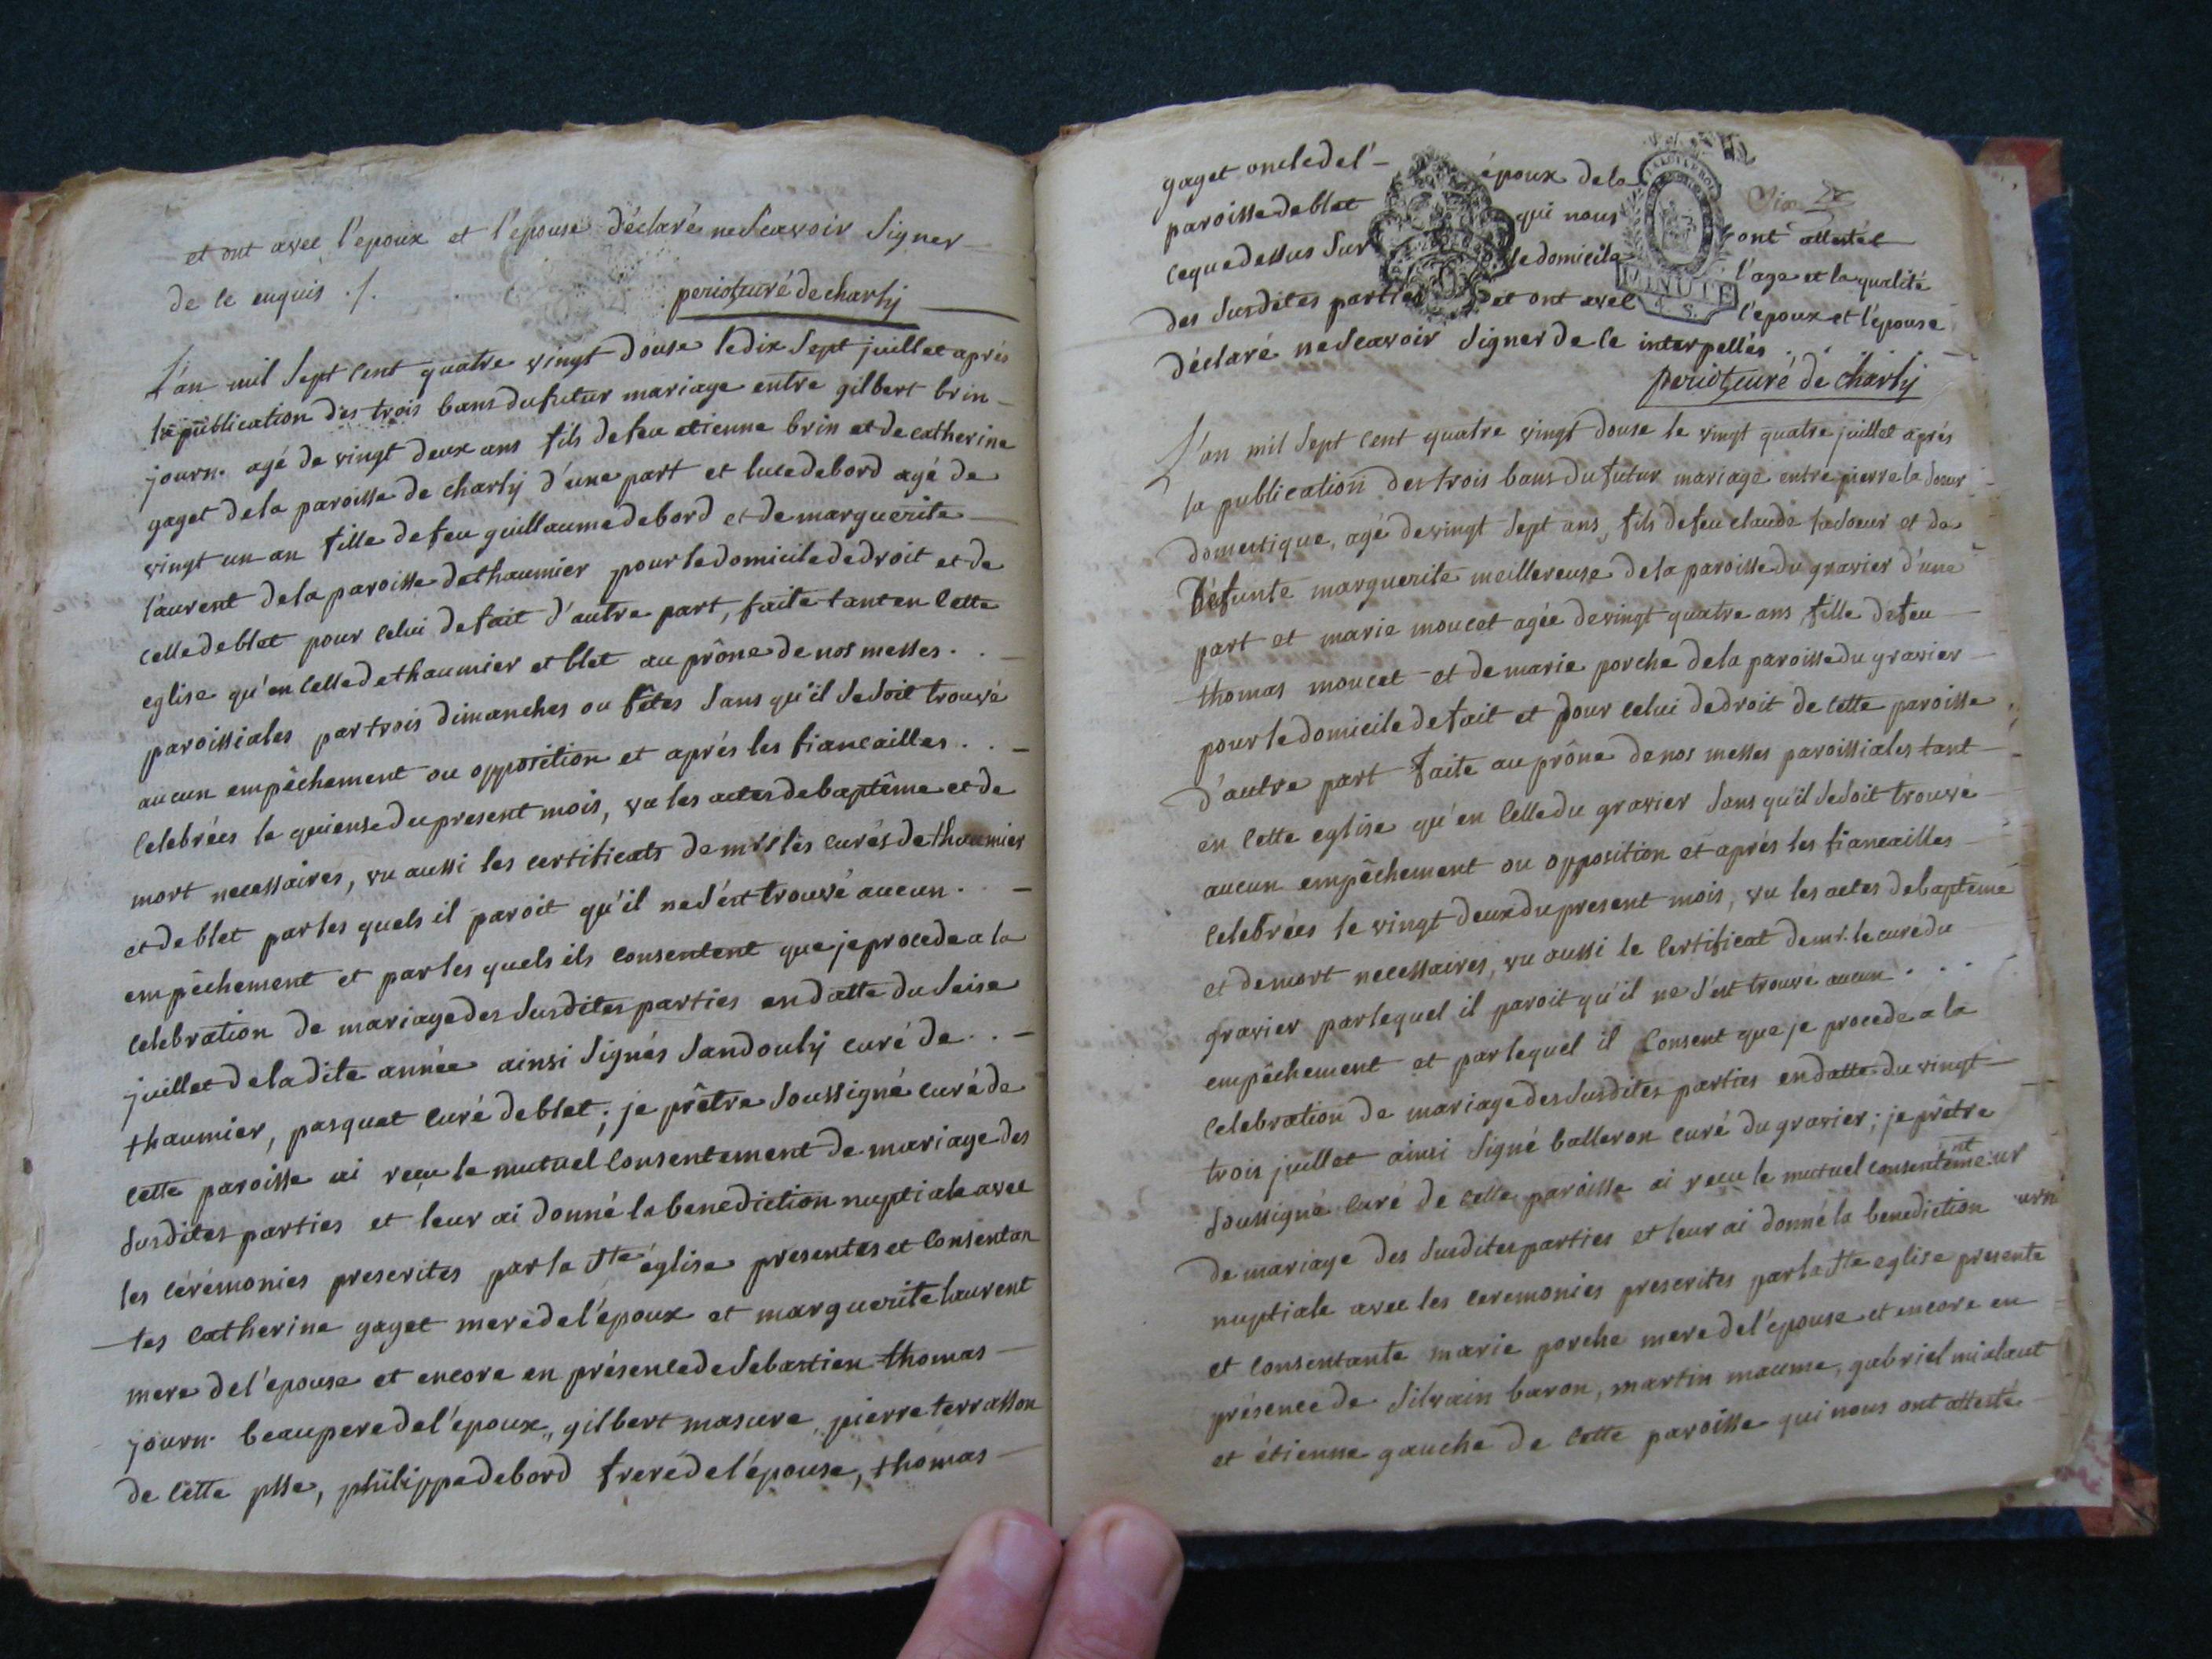 et ont avec l'epoux et l'epouse déclaré ne scavoir signer
de ce enquis ./.
periot curé de charly
L'an mil sept cent quatre vingt douse le dix sept juillet après
la publication des trois bans du futur mariage entre gilbert brin
journ. agé de vingt deux ans fils de feu etienne brin et de catherine
gaget de la paroisse de charly d'une part et luce debord agé de
vingt un an fille de feu guillaume debord et de marguerite
laurent de la paroisse de thaumier pour le domicile de droit et de
celle de blet pour celui de fait d'autre part, faite tant en cette
eglise qu'en celle de thaumier et blet au prône de nos messes . .
paroissiales par trois dimanches ou fêtes sans qu'il se soit trouvé
aucun empêchement ou opposition et après les fiancailles . .
celebrées le quiense du present mois, vu les actes de baptême et de
mort necessaires, vu aussi les certificats de mrs les curés de thaumier
et de blet par les quels il paroit qu'il ne s'est trouvé aucun . .
empêchement et par les quels ils consentent que je procede a la
celebration de mariage des susdites parties en datte du seise
juillet de la dite année ainsi signés sandouly curé de . .
thaumier, pasquet curé de blet ; je prêtre soussigné curé de
cette paroisse ai recu le mutuel consentement de mariage des
susdites parties et leur ai donné la benediction nuptiale avec
les cérémonies prescrites par la Ste église presentes et consentan
tes catherine gaget mere de l'époux et marguerite laurent
mere de l'epouse et encore en présence de sebastien thomas
journ. beaupere de l'époux, gilbert masure, pierre terrasson
de cette psse, philippe debord frere de l'épouse, thomas
gaget oncle de l'époux de la
paroisse de blet qui nous ont attesté
ce que dessus sur le domicile l'age et la qualité
des susdites parties et ont avec l'epoux et l'épouse
déclaré ne scavoir signer de ce interpellés . . .
MINUTE
4. S.
periot curé de charly
L'an mil sept cent quatre vingt douse le vingt quatre juillet après
la publication des trois bans du futur mariage entre pierre la soeur
domestique, agé de vingt sept ans, fils de feu claude lasoeur et de
défunte marguerite meillereuse de la paroisse du gravier d'une
part et marie moucet agée de vingt quatre ans fille de feu
thomas moucet et de marie porche de la paroisse du gravier
pour le domicile de fait et pour celui de droit de cette paroisse
d'autre part faite au prône de nos messes paroissiales tant
en cette eglise qu'en celle du gravier sans qu'il se soit trouvé
aucun empêchement ou opposition et après les fiancailles
celebrées le vingt deux du present mois, vu les actes de baptême
et de mort necessaires, vu aussi le certificat de mr. le curé du
gravier par lequel il paroit qu'il ne s'est trouvé aucun . . .
empêchement et par lequel il consent que je procede a la
celebration de mariage des susdites parties en datte du vingt
trois juillet ainsi signé balleron curé du gravier ; je prêtre
soussigné curé de cette paroisse ai recu le mutuel consentemt
de mariage des susdites parties et leur ai donné la benediction
nuptiale avec les ceremonies prescrites par la Ste eglise presente
et consentante marie porche mere de l'épouse et encore en
présence de silvain baron, martin maume, gabriel mialaut
et étienne gauche de cette paroisse qui nous ont attesté